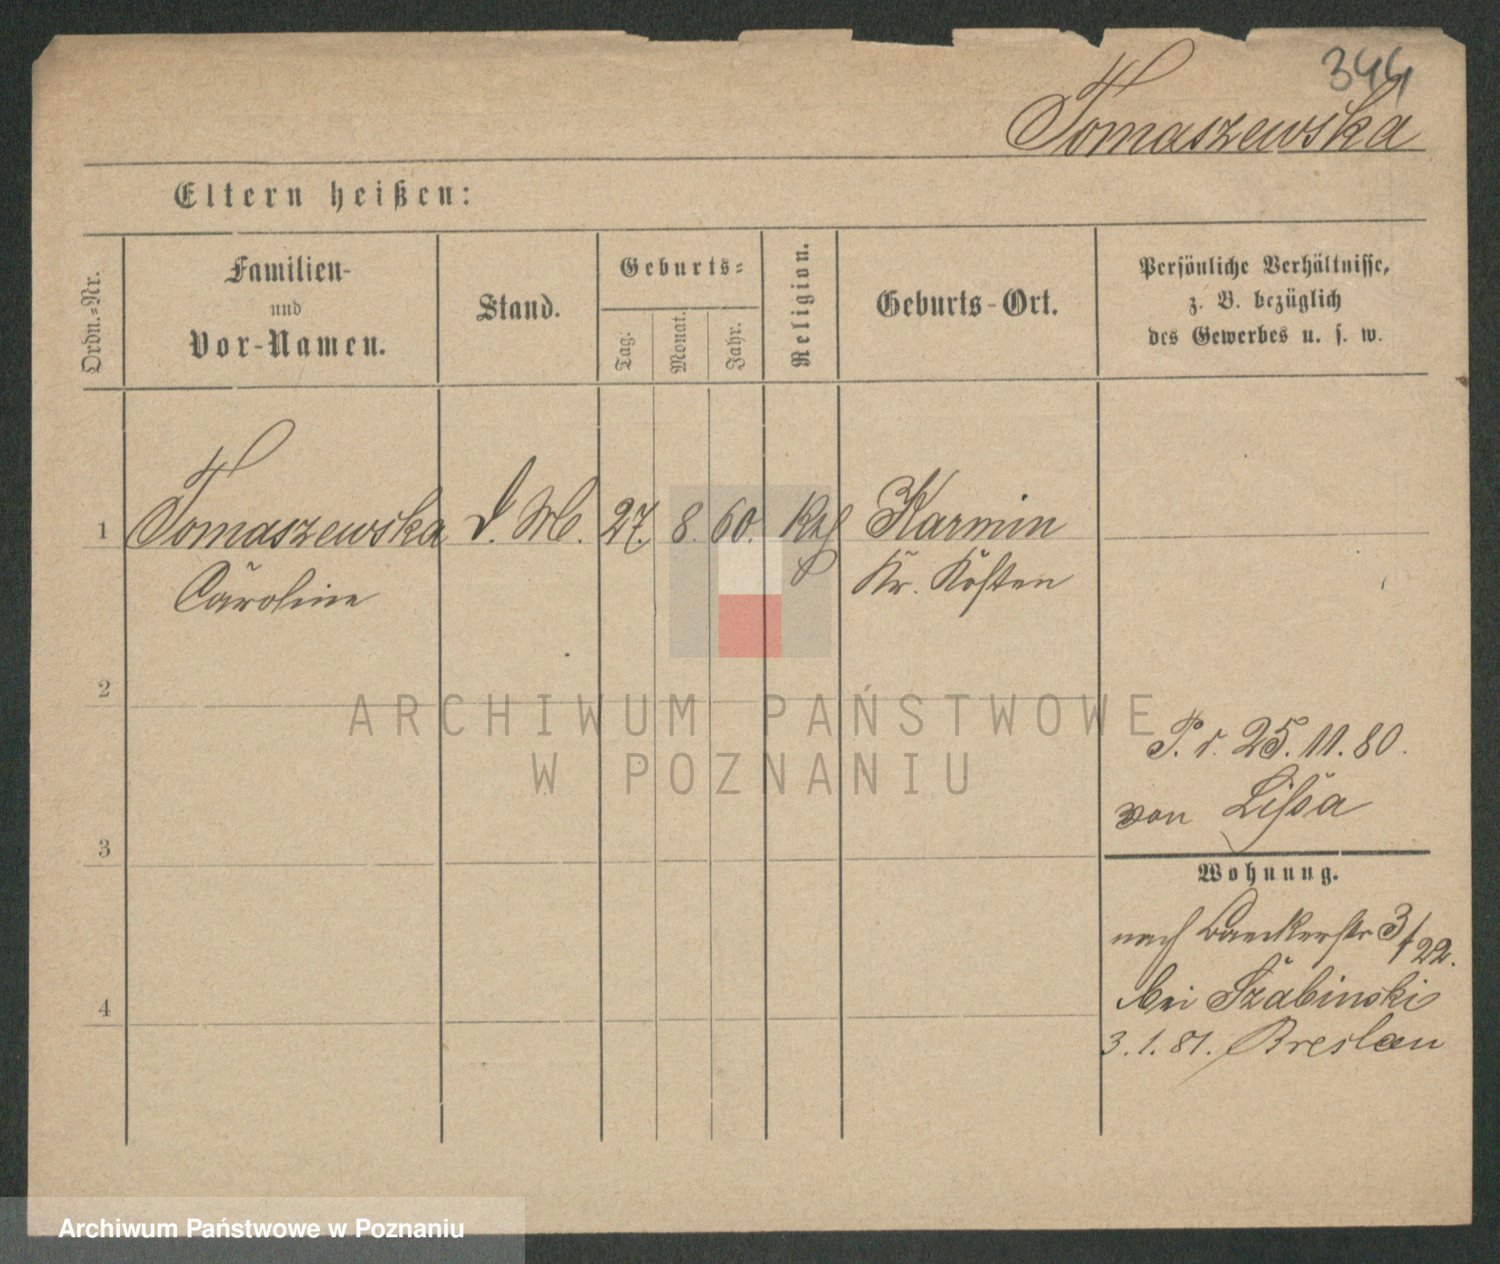 344
Tomaszewska
Eltern heißen:
Ordn.-Nr.
Familien-
und
Vor-Namen.
Stand.
Geburts-
Tag.
Monat.
Jahr.
Religion.
Geburts-Ort.
Persönliche Verhältnisse,
z. B. bezüglich
des Gewerbes u. s. w.
1 Tomaszewska D. M. 27. 8. 60. Kth Karmin
Caroline Kr. Kosten
2
P. v. 25. 11. 80.
von Lissa
3
Wohnung.
nach Baeckerstr 3/22.
bei Szabinski
4
3. 1. 81. Breslau
ARCHIWUM PAŃSTWOWE
W POZNANIU
Archiwum Państwowe w Poznaniu